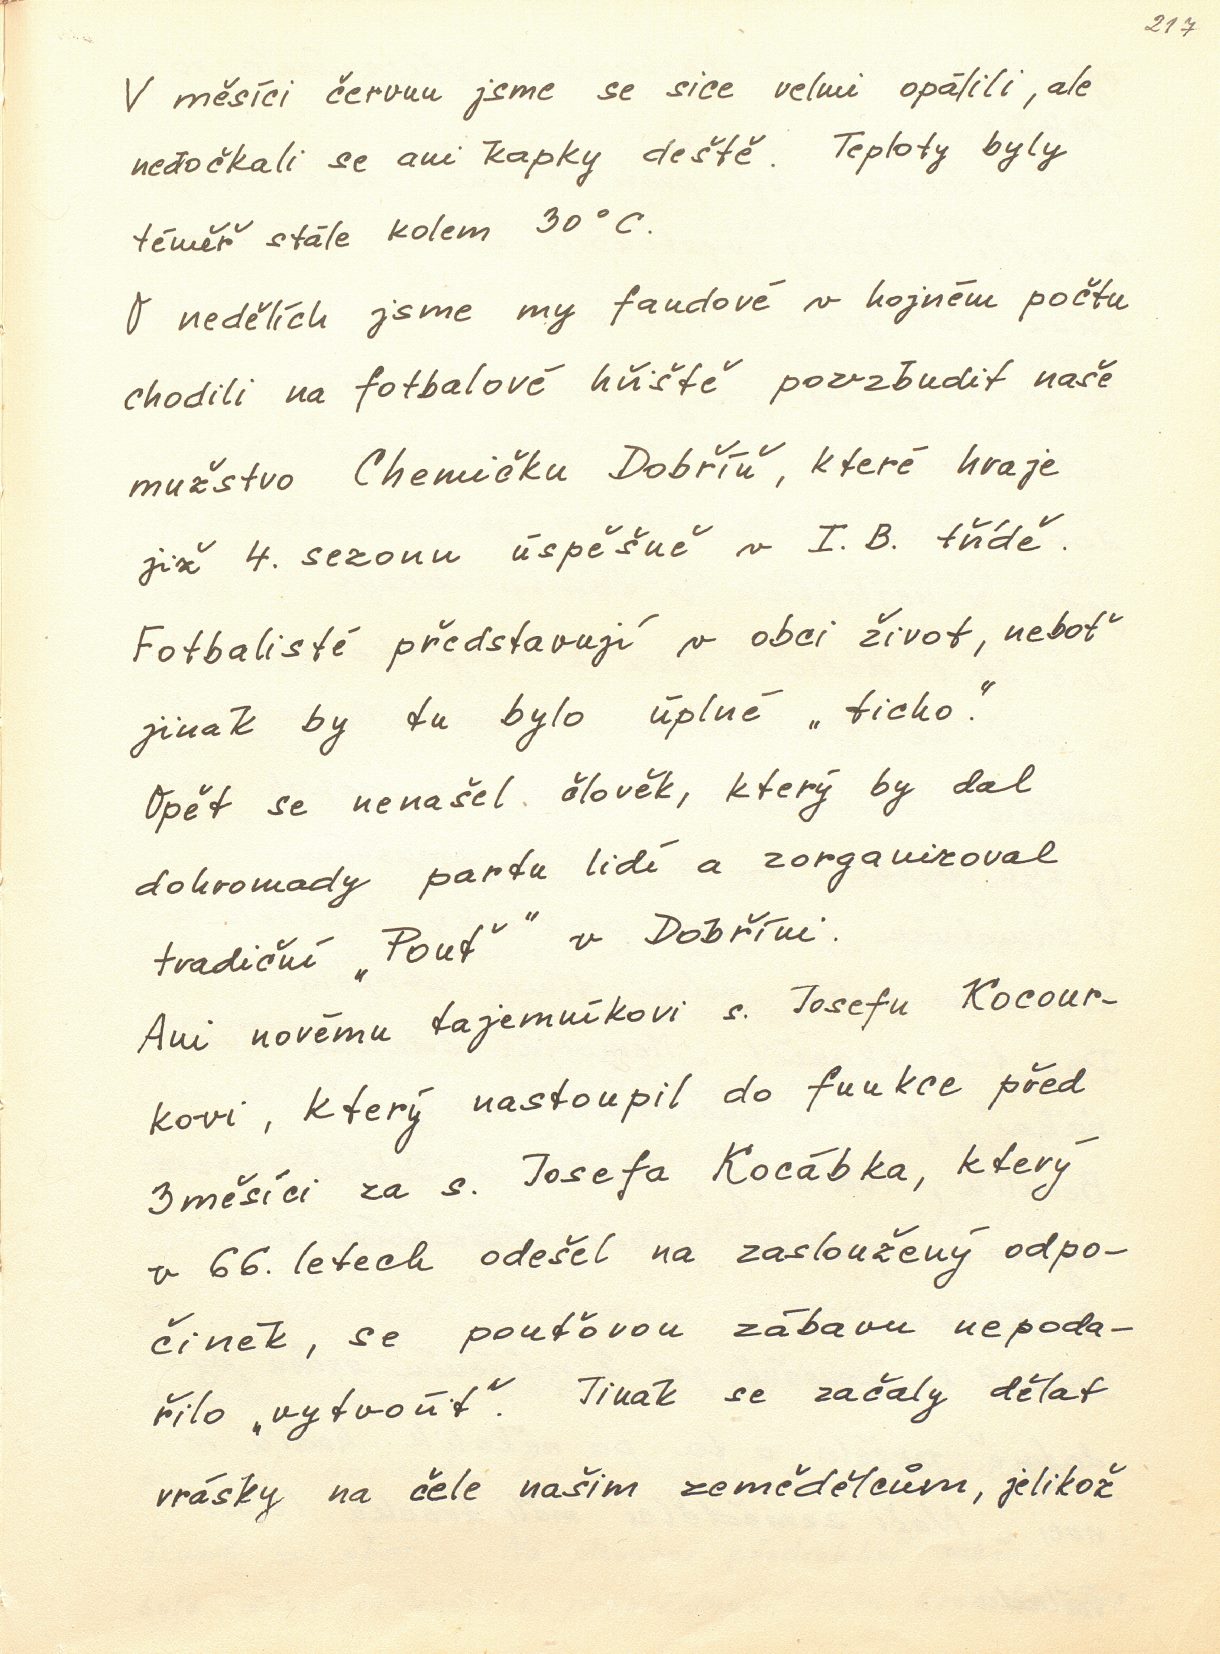 217
V měsíci červnu jsme se sice velmi opálili, ale
nedočkali se ani kapky deště. Teploty byly
téměř stále kolem 30°C.
O nedělích jsme my fandové v hojném počtu
chodili na fotbalové hřiště povzbudit naše
mužstvo Chemičku Dobříň, které hraje
již 4. sezonu úspěšně v I. B. třídě.
Fotbalisté představují v obci život, neboť
jinak by tu bylo úplné „ticho."
Opět se nenašel člověk, který by dal
dohromady partu lidí a zorganizoval
tradiční „Pouť" v Dobříni.
Ani novému tajemníkovi s. Josefu Kocour-
kovi, který nastoupil do funkce před
3 měsíci za s. Josefa Kocábka, který
v 66. letech odešel na zasloužený odpo-
činek, se pouťovou zábavu nepoda-
řilo „vytvořit". Jinak se začaly dělat
vrásky na čele našim zemědělcům, jelikož